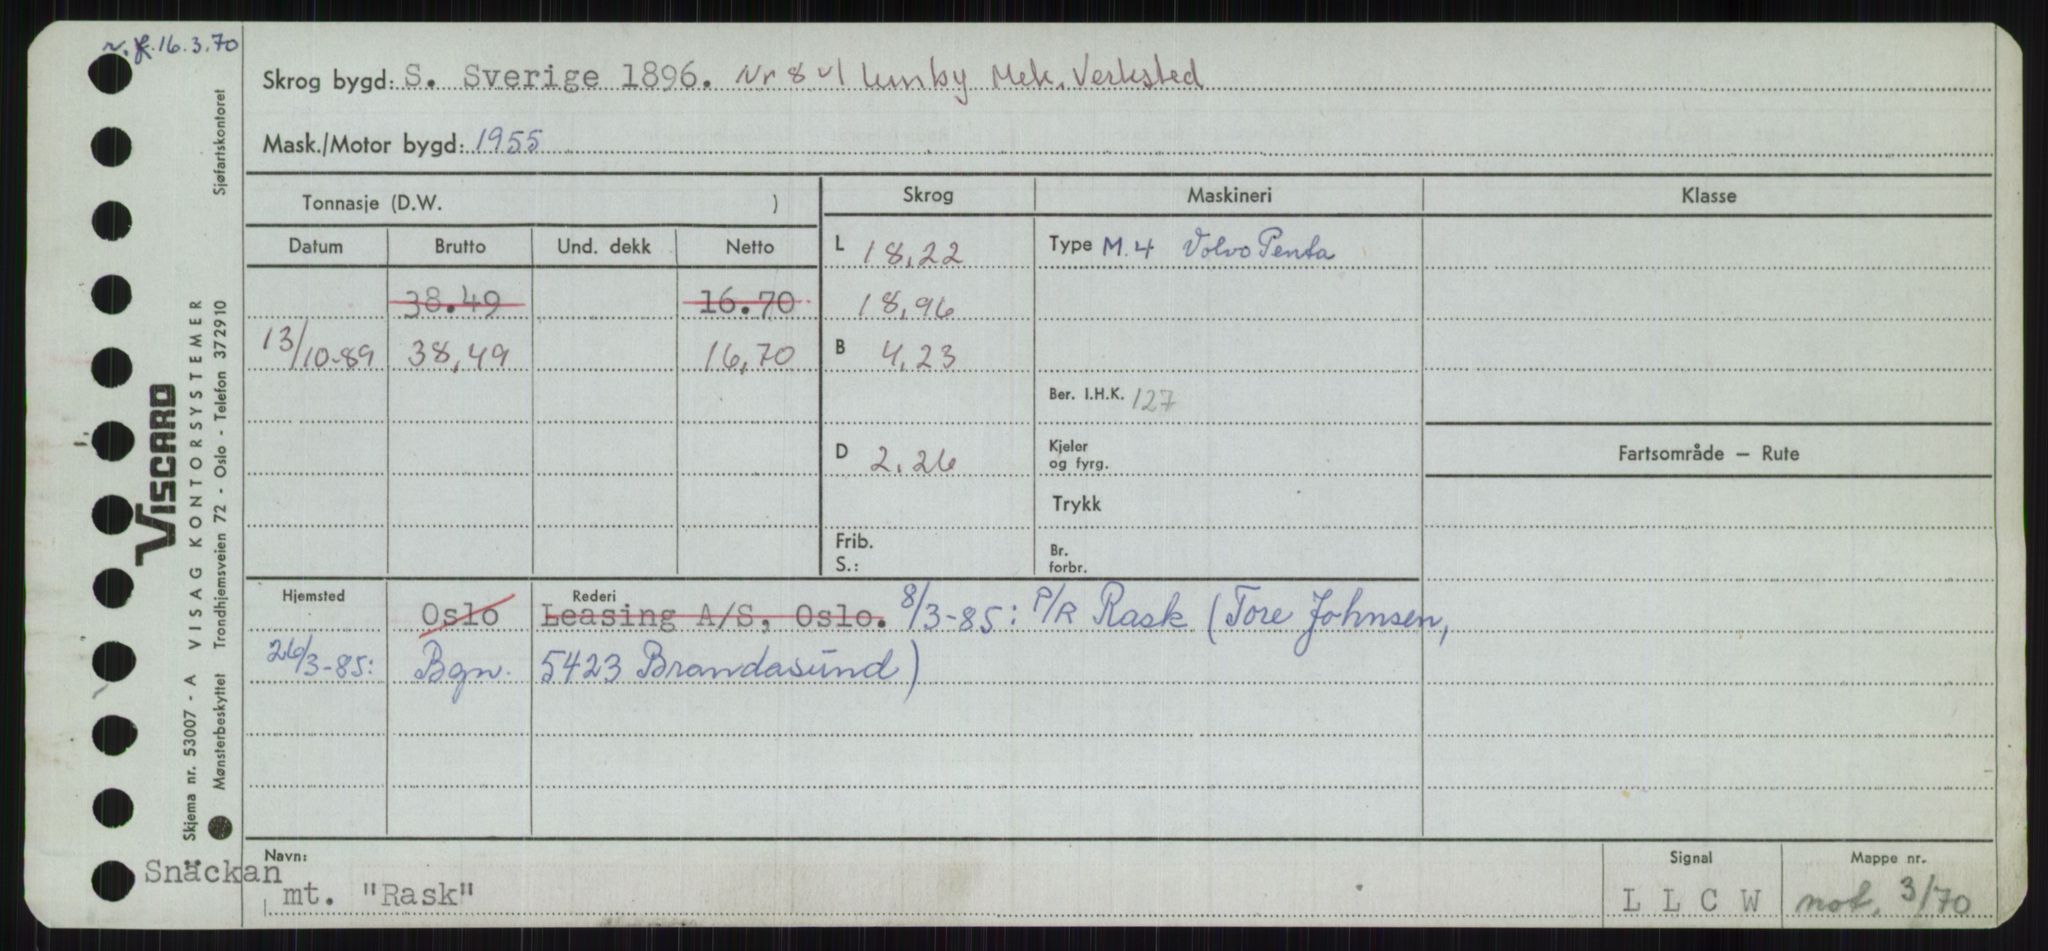 16.3.70
Skrog bygd: S. Sverige 1896. Nr 8 Mek. Verksted
Mask./Motor bygd: 1955
Tonnasje (D.W. ) Skrog Maskineri Klasse
Datum Brutto Und. dekk Netto L 18,22 Type M.4 Volvo Penta
38.49 16.70 18,96
13/10-89 38,49 16,70 B 4,23
Ber. I.H.K. 127
D 2.26 Kjeler og fyrg. Fartsområde — Rute
Trykk
Frib. S.: Br. forbr.
Hjemsted Oslo Rederi Leasing A/S, Oslo. 8/3-85: P/R Rask (Tore Johnsen,
26/3-85: Bgn. 5423 Brandasund)
Navn: Signal Mappe nr.
Snäckan
mt. "Rask" L L C W not. 3/70
VISCARD
Skjema nr. 53007 - A VISAG KONTORSYSTEMER
Mønsterbeskyttet Trondhjemsveien 72 - Oslo - Telefon 372910 Sjøfartskontoret